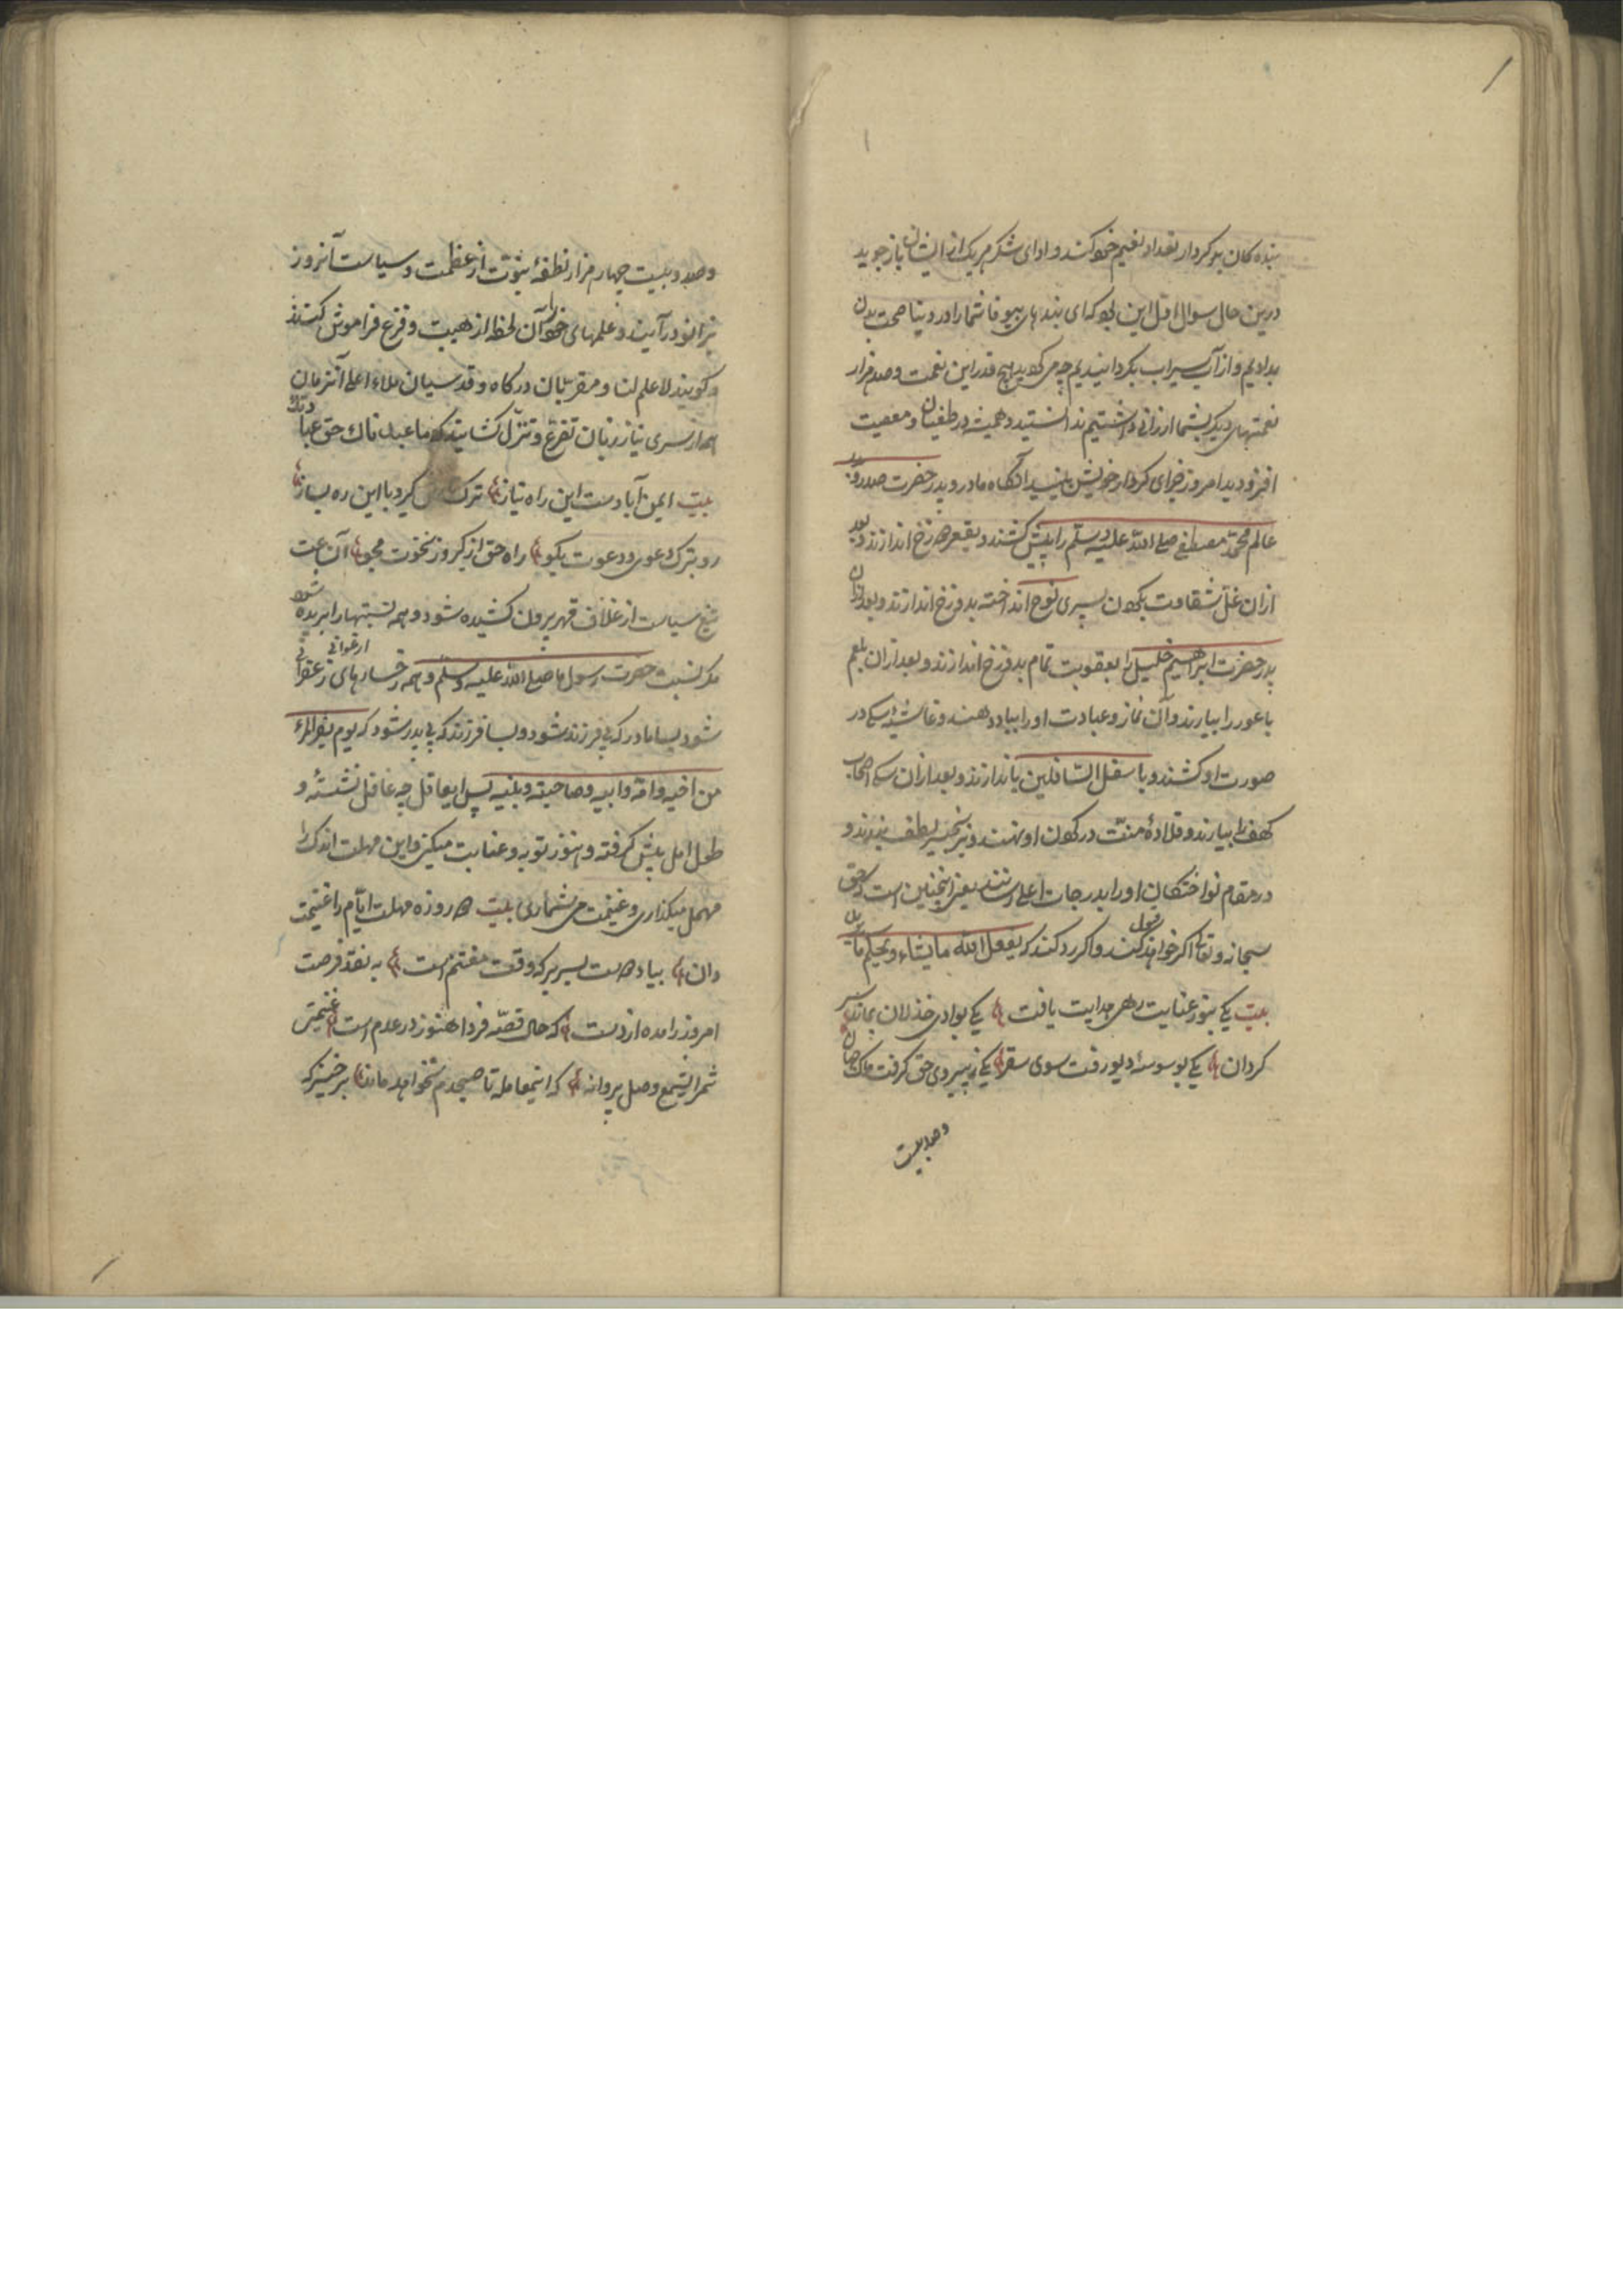 بنده کان بدکردار تعداد نعیم خود کند و ادای شکر هر یک از ایشان باز جوید
درین حال سوال اول این بود که ای بندهای بیوفا شمارا در دنیا صحت بدن
بدادیم و از آب سیراب بگردانیدیم چه می کویید هیچ قدر این نعمت و صد هزار
نعمتهای دیگر بشما ارزانی داشتیم ندانستید و همیشه در طغیان و معصیت
افزودید امروز جزای کردار خویش آنکاه مادر و پدر حضرت صدر
عالم محمد مصطفی صلی الله علیه وسلم را پیش کشند و بقعر دوزخ اندازند و بعد
ازان غل شقاوت بکردن پسری نوح انداخته بدوزخ اندازند و بعد ازان
پدر حضرت ابراهیم خلیل را بعقوبت تمام بدوزخ اندازند و بعد ازان بلعم
باعور را بیارند و آن نماز و عبادت او را بباد دهند و غاشیه سکی در
صورت او کشند و باسفل السافلین باندازند و بعد ازان سک اصحاب
کهف را بیارند و قلادهٔ منت در کردن او نهند و زنجیر لطف بندند و
در مقام نواختکان او را بدرجات اعلی رسانند یعنی اینچنین است که حق
سبحانه و تعالی اکر خواهد قبول کند و اکر رد کند که یفعل الله ما یشاء و یحکم ما یرید
بیت یکی بنور عنایت رهی هدایت یافت یکی بوادی خذلان بماند سر
کردان یکی بوسوسه دیو رفت سوی سقر یکی ز پیروی حق کرفت ملک جنان
وصد بیست
وصد و بیست چهار هزار نطفهٔ نبوت از عظمت و سیاست آنروز
بزانو در آیند و علمهای خود را آن لحظه از هیبت و فزع فراموش کنند
و کویند لا علم لنا و مقربان درکاه و قدسیان ملاء اعلی آنزمان
همه از سری نیاز زبان تضرع و تنزل کشایند که ما عبدناک حق عبادتک
بیت ایمن آبادست این راه نیاز ترک کیر و با این ره بساز
رو بترک دعوی و دعوت بکو راه حق از کبر و ز نخوت مجو آن ساعت
تیغ سیاست از غلاف قهر بیرون کشیده شود و همه نسبتها را بریده شود
مکر نسبت حضرت رسول ما صلی الله علیه وسلم و همه رخسارهای ارغوانی زعفرانی
شود بسا مادر که بی فرزند شود و بسا فرزند که بی پدر شود که یوم یفر المرء
من اخیه و امه و ابیه و صاحبته و بنیه پس ایعاقل چه غافل نشستهٔ و
طول امل پیش کرفته و هنوز توبه و عنایت میکنی و این مهلت اندک را
مهمل میکذاری و غنیمت می شماری بیت ده روزه مهلت ایام را غنیمت
دان بیاد دوست بسر بر که وقت مغتنم است به نقد فرصت
امروز را مده از دست که حال قصه فردا هنوز در عدم است غنیمتی
شمر ای شمع وصل پروانه که اینمعامله تا صبحدم نخواهد ماند برخیز که